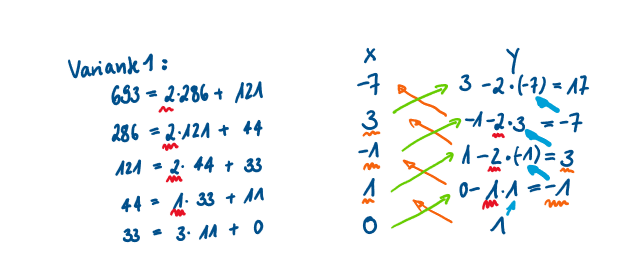 Variante 1:
693 = 2·286 + 121
286 = 2·121 + 44
121 = 2·44 + 33
44 = 1·33 + 11
33 = 3·11 + 0
x y
-7 3 -2·(-7) = 17
3 -1-2·3 = -7
-1 1-2·(-1) = 3
1 0-1·1 = -1
0 1